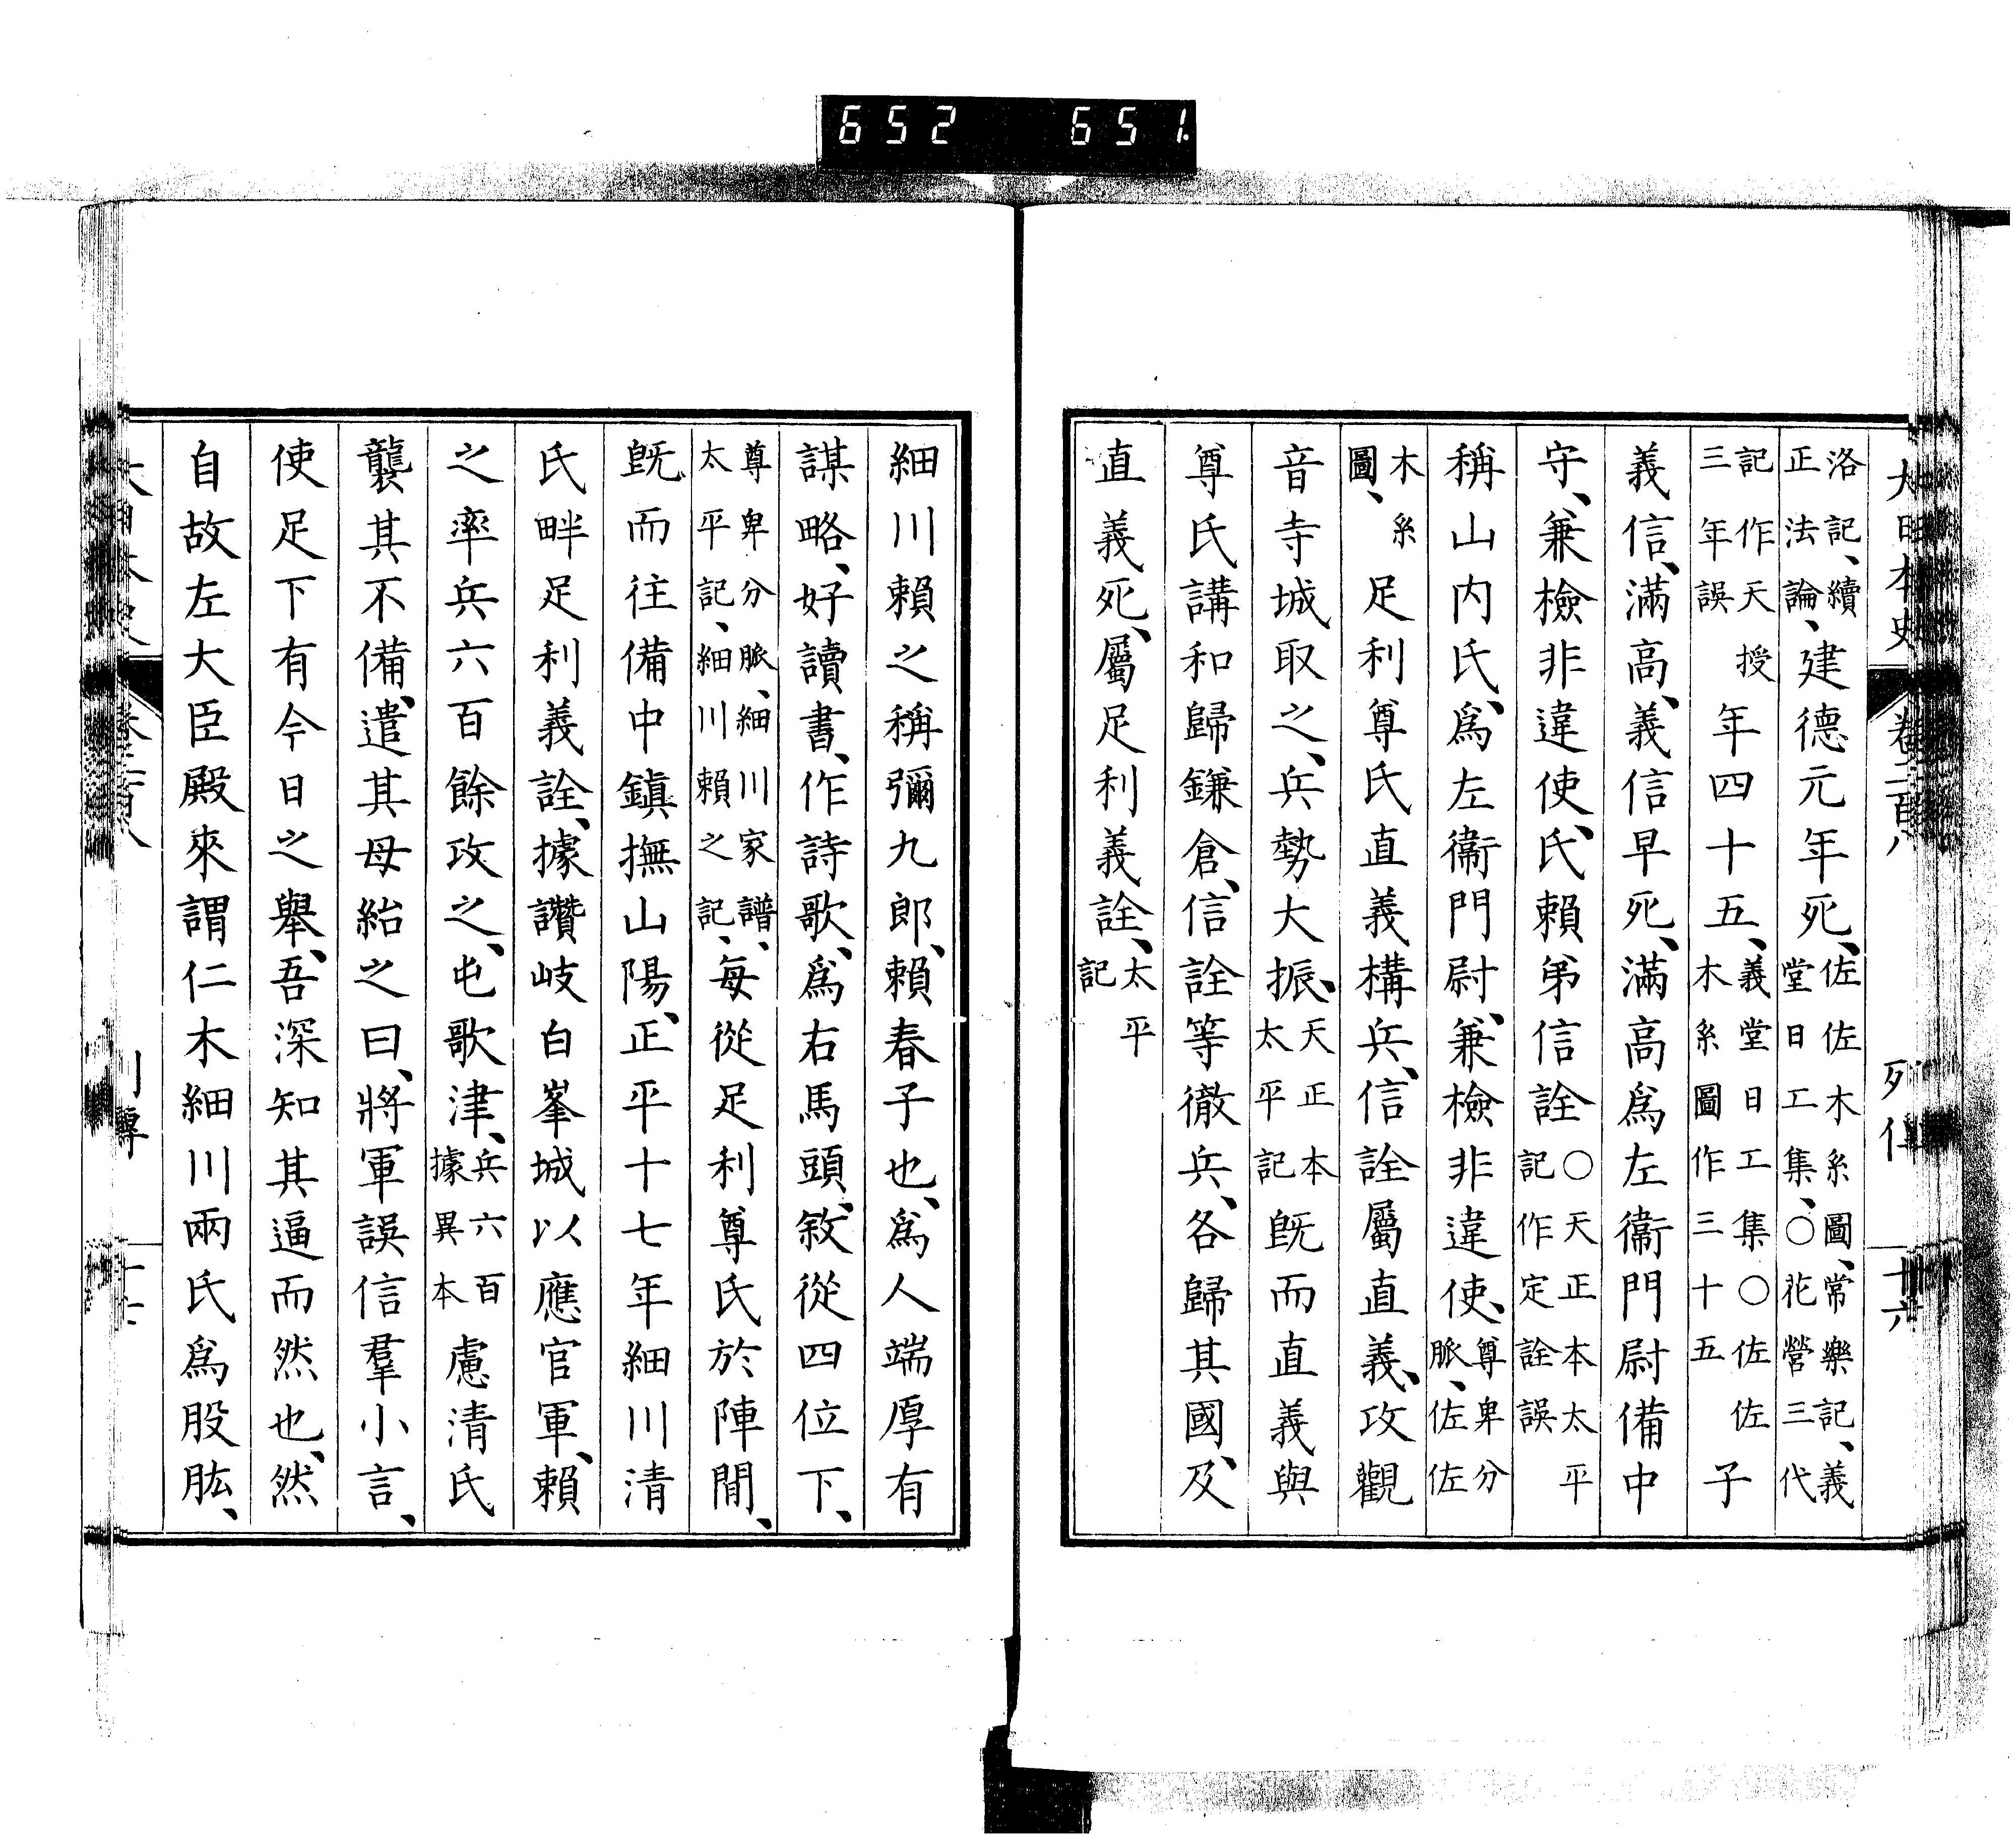 652 651
洛記、續正法論、建德元年死、佐佐木系圖、常樂記、義堂日工集、○花營三代
記作天授三年誤年四十五、義堂日工集○佐佐木系圖作三十五子
義信、滿高、義信早死、滿高爲左衞門尉備中
守、兼檢非違使、氏賴弟信詮○天正本太平記作定詮誤
稱山内氏、爲左衞門尉、兼檢非違使、尊卑分脈、佐佐
木系圖、足利尊氏直義構兵、信詮屬直義、攻觀
音寺城取之、兵勢大振、天正本太平記既而直義與
尊氏講和歸鎌倉、信詮等徹兵、各歸其國、及
直義死、屬足利義詮、太平記
細川賴之稱彌九郎、賴春子也、爲人端厚有
謀略、好讀書、作詩歌、爲右馬頭、敘從四位下、
尊卑分脈、細川家譜、太平記、細川賴之記、每從足利尊氏於陣間、
既而往備中鎭撫山陽、正平十七年細川清
氏畔足利義詮、據讚岐白峯城以應官軍、賴
之率兵六百餘攻之、屯歌津、兵六百據異本慮清氏
襲其不備、遣其母紿之曰、將軍誤信羣小言、
使足下有今日之舉、吾深知其逼而然也、然
自故左大臣殿來謂仁木細川兩氏爲股肱、